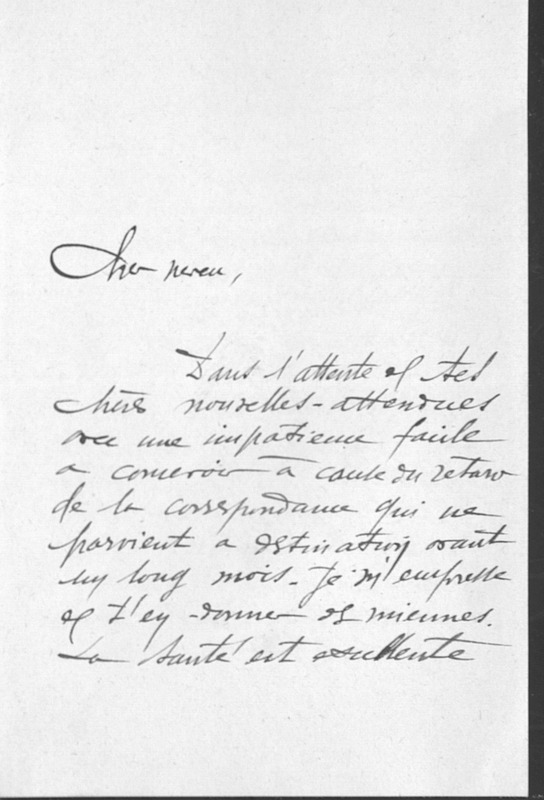 Cher neveu,
Dans l'attente de tes
chères nouvelles - attendues
avec une impatience facile
a concevoir à cause du retard
de la correspondance qui ne
parvient a destination avant
un long mois. Je m'empresse
de t'en donner des miennes.
La santé est excellente